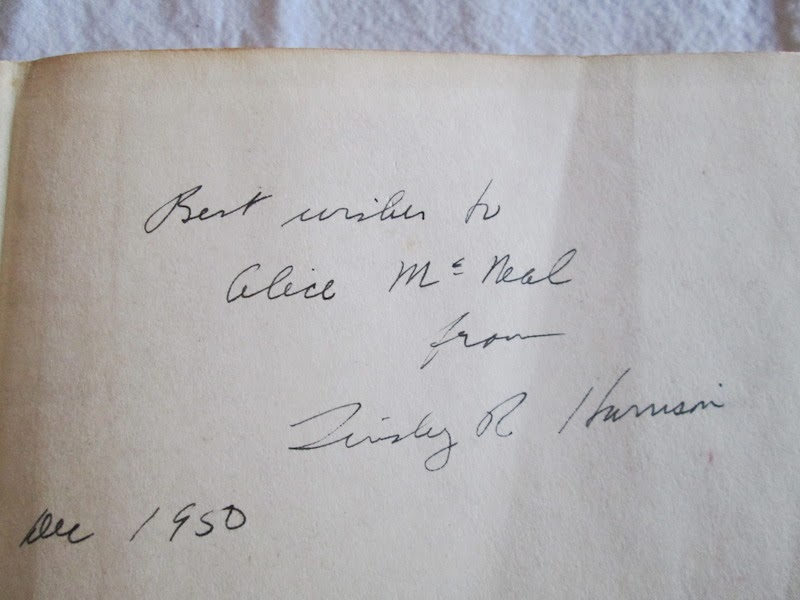 Best wishes to
Alice McNeal
from
Tinsley R Harrison
Dec 1950